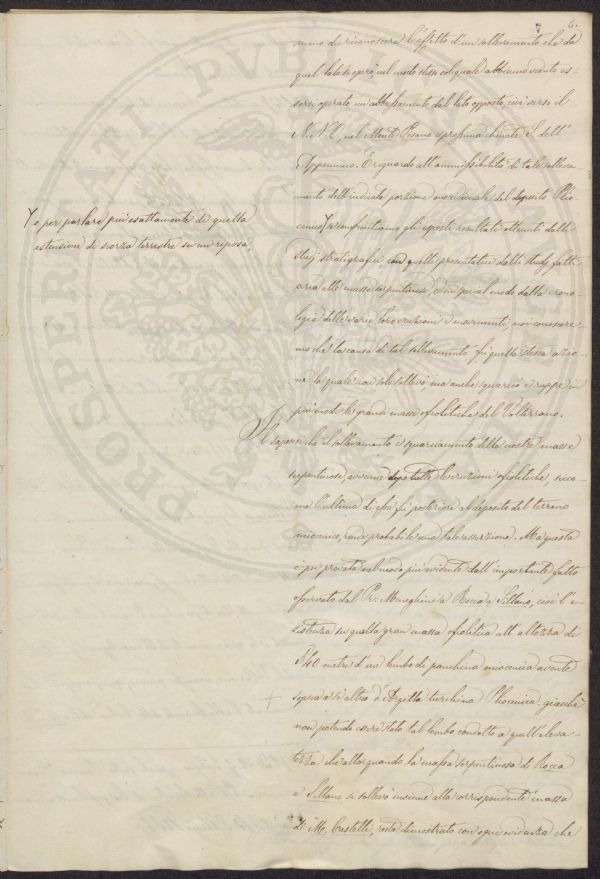 6.
meno di riconoscere l'effetto d'un sollevamento che da
quel lato si operò, nel modo stesso col quale abbiamo veduto es-
sersi operato un'abbassamento dal lato opposto, cioè verso il
N.N.O, nel Monte Pisano e prossima chinata S. dell'
Appennino. E riguardo all'ammissibilità di tale solleva-
mento dell'indicata porzione meridionale del deposito Plio-
cenico Y se confrontiamo gli esposti resultati ottenuti dalli
studj stratigrafici con quelli presentatici dalli studj fatti
circa alle masse serpentinose, ed in special modo dalla crono-
logia delle varie loro eruzioni e movimenti, noi conosceре-
mo che la causa di tal sollevamento fu quella stessa azio-
ne la quale non solo sollevò, ma anche squarciò e ruppe in
più modi le grandi masse ofiolitiche del Volterrano.
Y o per parlare più esattamente di quella
estensione di scorza terrestre su cui riposa,
Il sapersi che il sollevamento e squarciamento delle nostre masse
serpentinose, avvenne dopo tutte le eruzioni ofiolitiche, sicco-
me l'ultima di esse fu posteriore al deposito del terreno
miocenico, rende probabile una tale asserzione. Ma questa
è poi provata nel modo più evidente dall'importante fatto
osservato dal Pr. Meneghini a Rocca a Sillano, cioè l'e-
sistenza su quella gran massa ofiolitica all'altezza di
540 metri d'un lembo di panchina miocenica avente
sopra a se altro d'Argilla turchina Pliocenica. giacchè
non potendo essere stato tal lembo condotto a quell'eleva-
tezza che allorquando la massa serpentinosa di Rocca
a Sillano si sollevò insieme alla corrispondente massa
di Mo. Castelli, resta dimostrato con ogni evidenza che
PROSPERITATI PVBLICAE